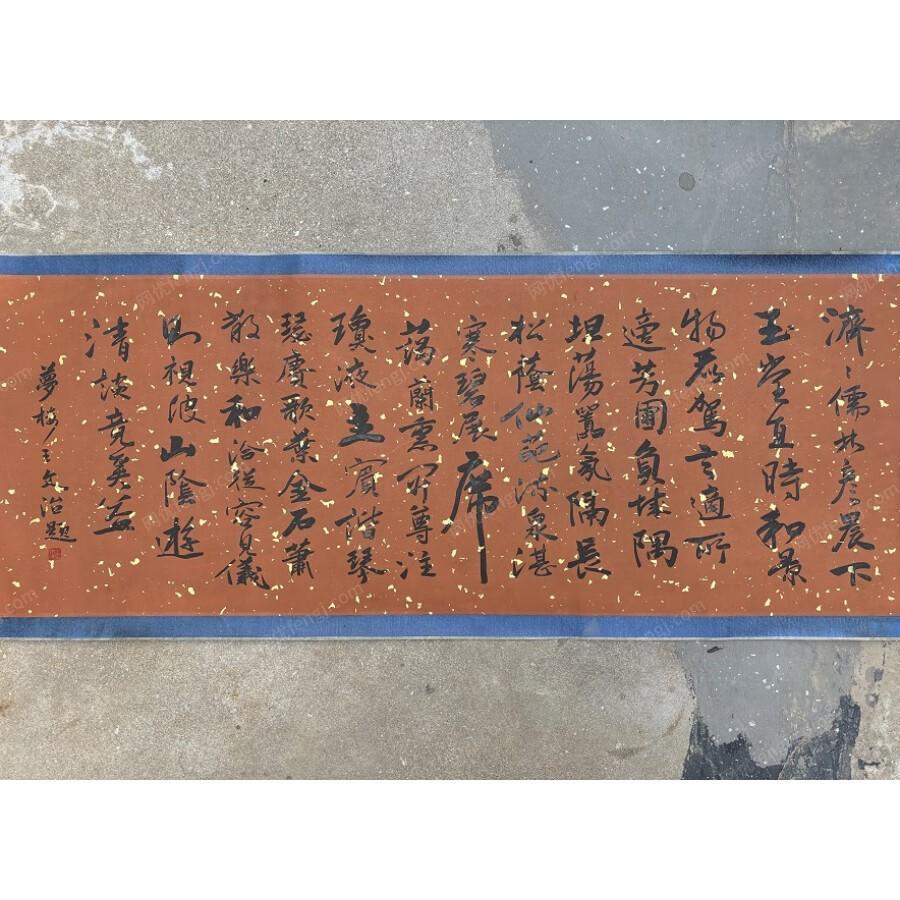 濟〻儒林彥晨下
玉堂直時和景
物嘉駕言適所
適芳園負城隅
坦蕩囂氛隔長
松蔭仙苑流泉湛
寒碧展席
藉蘭蕙開尊注
瓊液主賓諧琴
瑟賡歌葉金石蕭
散樂和洽從容見儀
則視彼山陰遊
清談竟奚益
夢樓王文治題